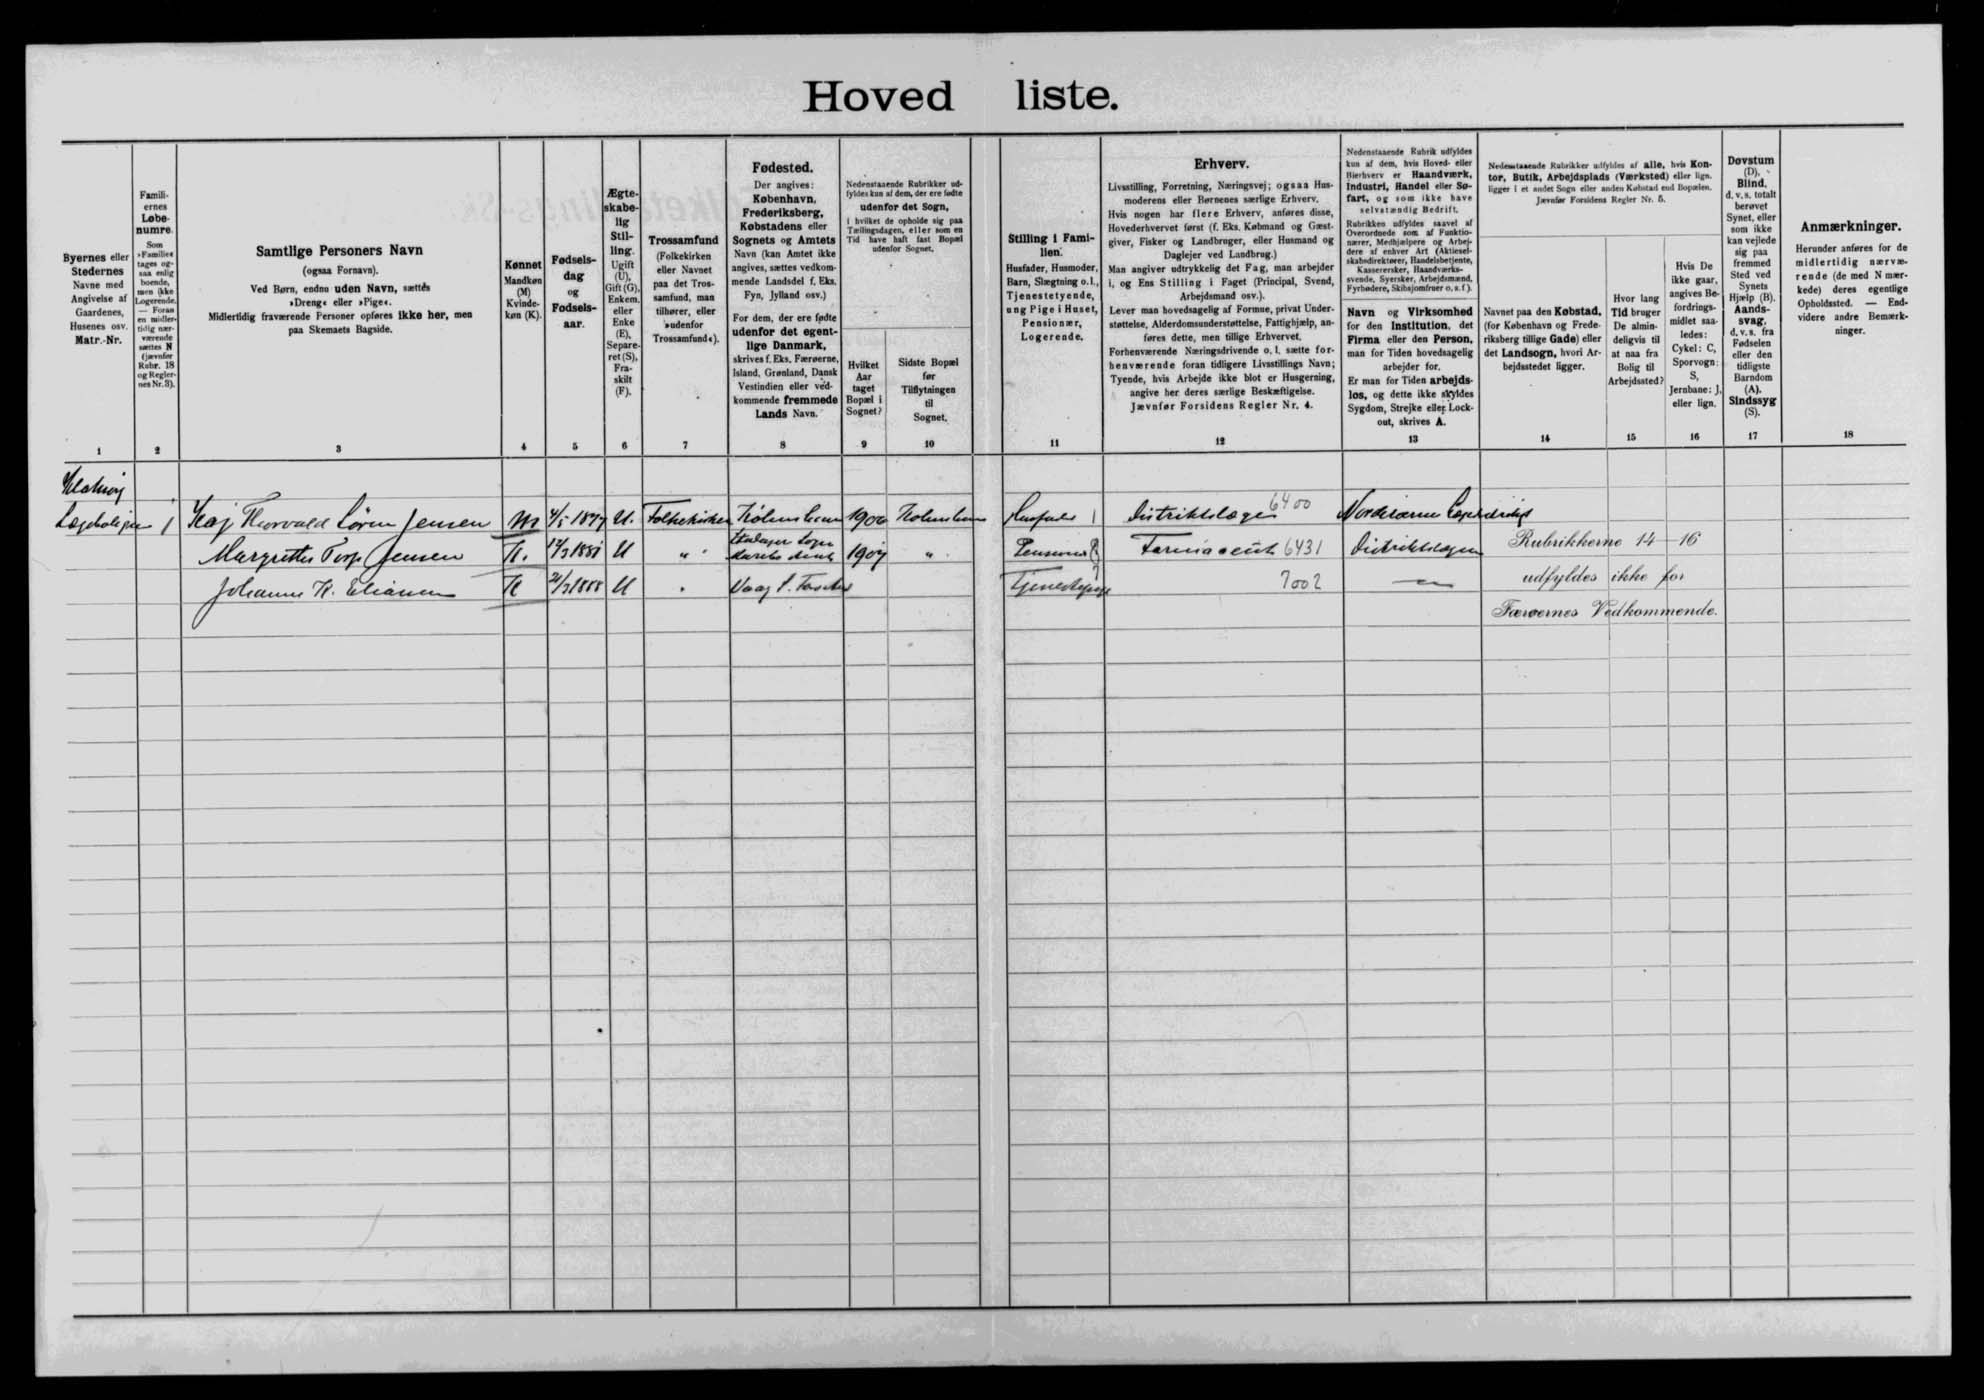 Hovedliste.
Byernes eller
Stedernes
Navne med
Angivelse af
Gaardenes,
Husenes osv.
Matr.-Nr.
1
Famili-
ernes
Løbe-
numre.
Som
»Familie«
tages og-
saa enlig
boende,
men ikke
Logerende.
— Foran
en midler-
tidig nær-
værende
sættes N
(jævnfør
Rubr. 18
og Regler-
nes Nr. 3).
2
Samtlige Personers Navn
(ogsaa Fornavn).
Ved Børn, endnu uden Navn, sættes
»Dreng« eller »Pige«.
Midlertidig fraværende Personer opføres ikke her, men
paa Skemaets Bagside.
3
Kønnet
Mandkøn
(M)
Kvinde-
køn (K).
4
Fødsels-
dag
og
Fødsels-
aar.
5
Ægte-
skabe-
lig
Stil-
ling.
Ugift
(U),
Gift (G),
Enkem.
eller
Enke
(E),
Separe-
ret (S),
Fra-
skilt
(F).
6
Trossamfund
(Folkekirken
eller Navnet
paa det Tros-
samfund, man
tilhører, eller
»udenfor
Trossamfund«).
7
Fødested.
Der angives:
København,
Frederiksberg,
Købstadens eller
Sognets og Amtets
Navn (kan Amtet ikke
angives, sættes vedkom-
mende Landsdel f. Eks.
Fyn, Jylland osv.)
For dem, der ere fødte
udenfor det egent-
lige Danmark,
skrives f. Eks. Færøerne,
Island, Grønland, Dansk
Vestindien eller ved-
kommende fremmede
Lands Navn.
8
Nedenstaaende Rubrikker ud-
fyldes kun af dem, der ere fødte
udenfor det Sogn,
i hvilket de opholde sig paa
Tællingsdagen, eller som en
Tid have haft fast Bopæl
udenfor Sognet.
Hvilket
Aar
taget
Bopæl i
Sognet?
9
Sidste Bopæl
før
Tilflytningen
til
Sognet.
10
Stilling i Fami-
lien.
Husfader, Husmoder,
Barn, Slægtning o. l.,
Tjenestetyende,
ung Pige i Huset,
Pensionær,
Logerende.
11
Erhverv.
Livsstilling, Forretning, Næringsvej; ogsaa Hus-
moderens eller Børnenes særlige Erhverv.
Hvis nogen har flere Erhverv, anføres disse,
Hovederhvervet først (f. Eks. Købmand og Gæst-
giver, Fisker og Landbruger, eller Husmand og
Daglejer ved Landbrug.)
Man angiver udtrykkelig det Fag, man arbejder
i, og Ens Stilling i Faget (Principal, Svend,
Arbejdsmand osv.).
Lever man hovedsagelig af Formue, privat Under-
støttelse, Alderdomsunderstøttelse, Fattighjælp, an-
føres dette, men tillige Erhvervet.
Forhenværende Næringsdrivende o. l. sætte for-
henværende foran tidligere Livsstillings Navn;
Tyende, hvis Arbejde ikke blot er Husgerning,
angive her deres særlige Beskæftigelse.
Jævnfør Forsidens Regler Nr. 4.
12
Nedenstaaende Rubrik udfyldes
kun af dem, hvis Hoved- eller
Bierhverv er Haandværk,
Industri, Handel eller Sø-
fart, og som ikke have
selvstændig Bedrift.
Rubrikken udfyldes saavel af
Overordnede som af Funktio-
nærer, Medhjælpere og Arbej-
dere af enhver Art (Aktiesel-
skabsdirektører, Handelsbetjente,
Kassererskeer, Haandværks-
svende, Syersker, Arbejdsmænd,
Fyrbødere, Skibsjomfruer o. s. f.).
Navn og Virksomhed
for den Institution, det
Firma eller den Person,
man for Tiden hovedsagelig
arbejder for.
Er man for Tiden arbejds-
løs, og dette ikke skyldes
Sygdom, Strejke eller Lock-
out, skrives A.
13
Nedenstaaende Rubrikker udfyldes af alle, hvis Kon-
tor, Butik, Arbejdsplads (Værksted) eller lign.
ligger i et andet Sogn eller anden Købstad end Bopælen.
Jævnfør Forsidens Regler Nr. 5.
Navnet paa den Købstad,
(for København og Frede-
riksberg tillige Gade) eller
det Landsogn, hvori Ar-
bejdsstedet ligger.
14
Hvor lang
Tid bruger
De almin-
deligvis til
at naa fra
Bolig til
Arbejdssted?
15
Hvis De
ikke gaar,
angives Be-
fordrings-
midlet saa-
ledes:
Cykel: C,
Sporvogn:
S,
Jernbane: J,
eller lign.
16
Døvstum
(D),
Blind,
d. v. s. totalt
berøvet
Synet, eller
som ikke
kan vejlede
sig paa
fremmed
Sted ved
Synets
Hjælp (B).
Aands-
svag,
d. v. s. fra
Fødselen
eller den
tidligste
Barndom
(A).
Sindssyg
(S).
17
Anmærkninger.
Herunder anføres for de
midlertidig nærvæ-
rende (de med N mær-
kede) deres egentlige
Opholdssted. — End-
videre andre Bemærk-
ninger.
18
Klaksvig
Lægeboligen 1 Kaj Thorvald Sören Jensen M 4/5 1877 U. Folkekirken København 1906 København Husfader 1 Distriktslæge 6400 Norderøernes Lægedistrikt
Margrethe Torp Jensen K. 1881 U " 1907 " Pensionær Farmaceut 6431 Distriktslægen
Johanne K. Eliasen K 1888 U " Vaag Tjenestepige 7002
Rubrikkerne 14—16
udfyldes ikke for
Færøernes Vedkommende.